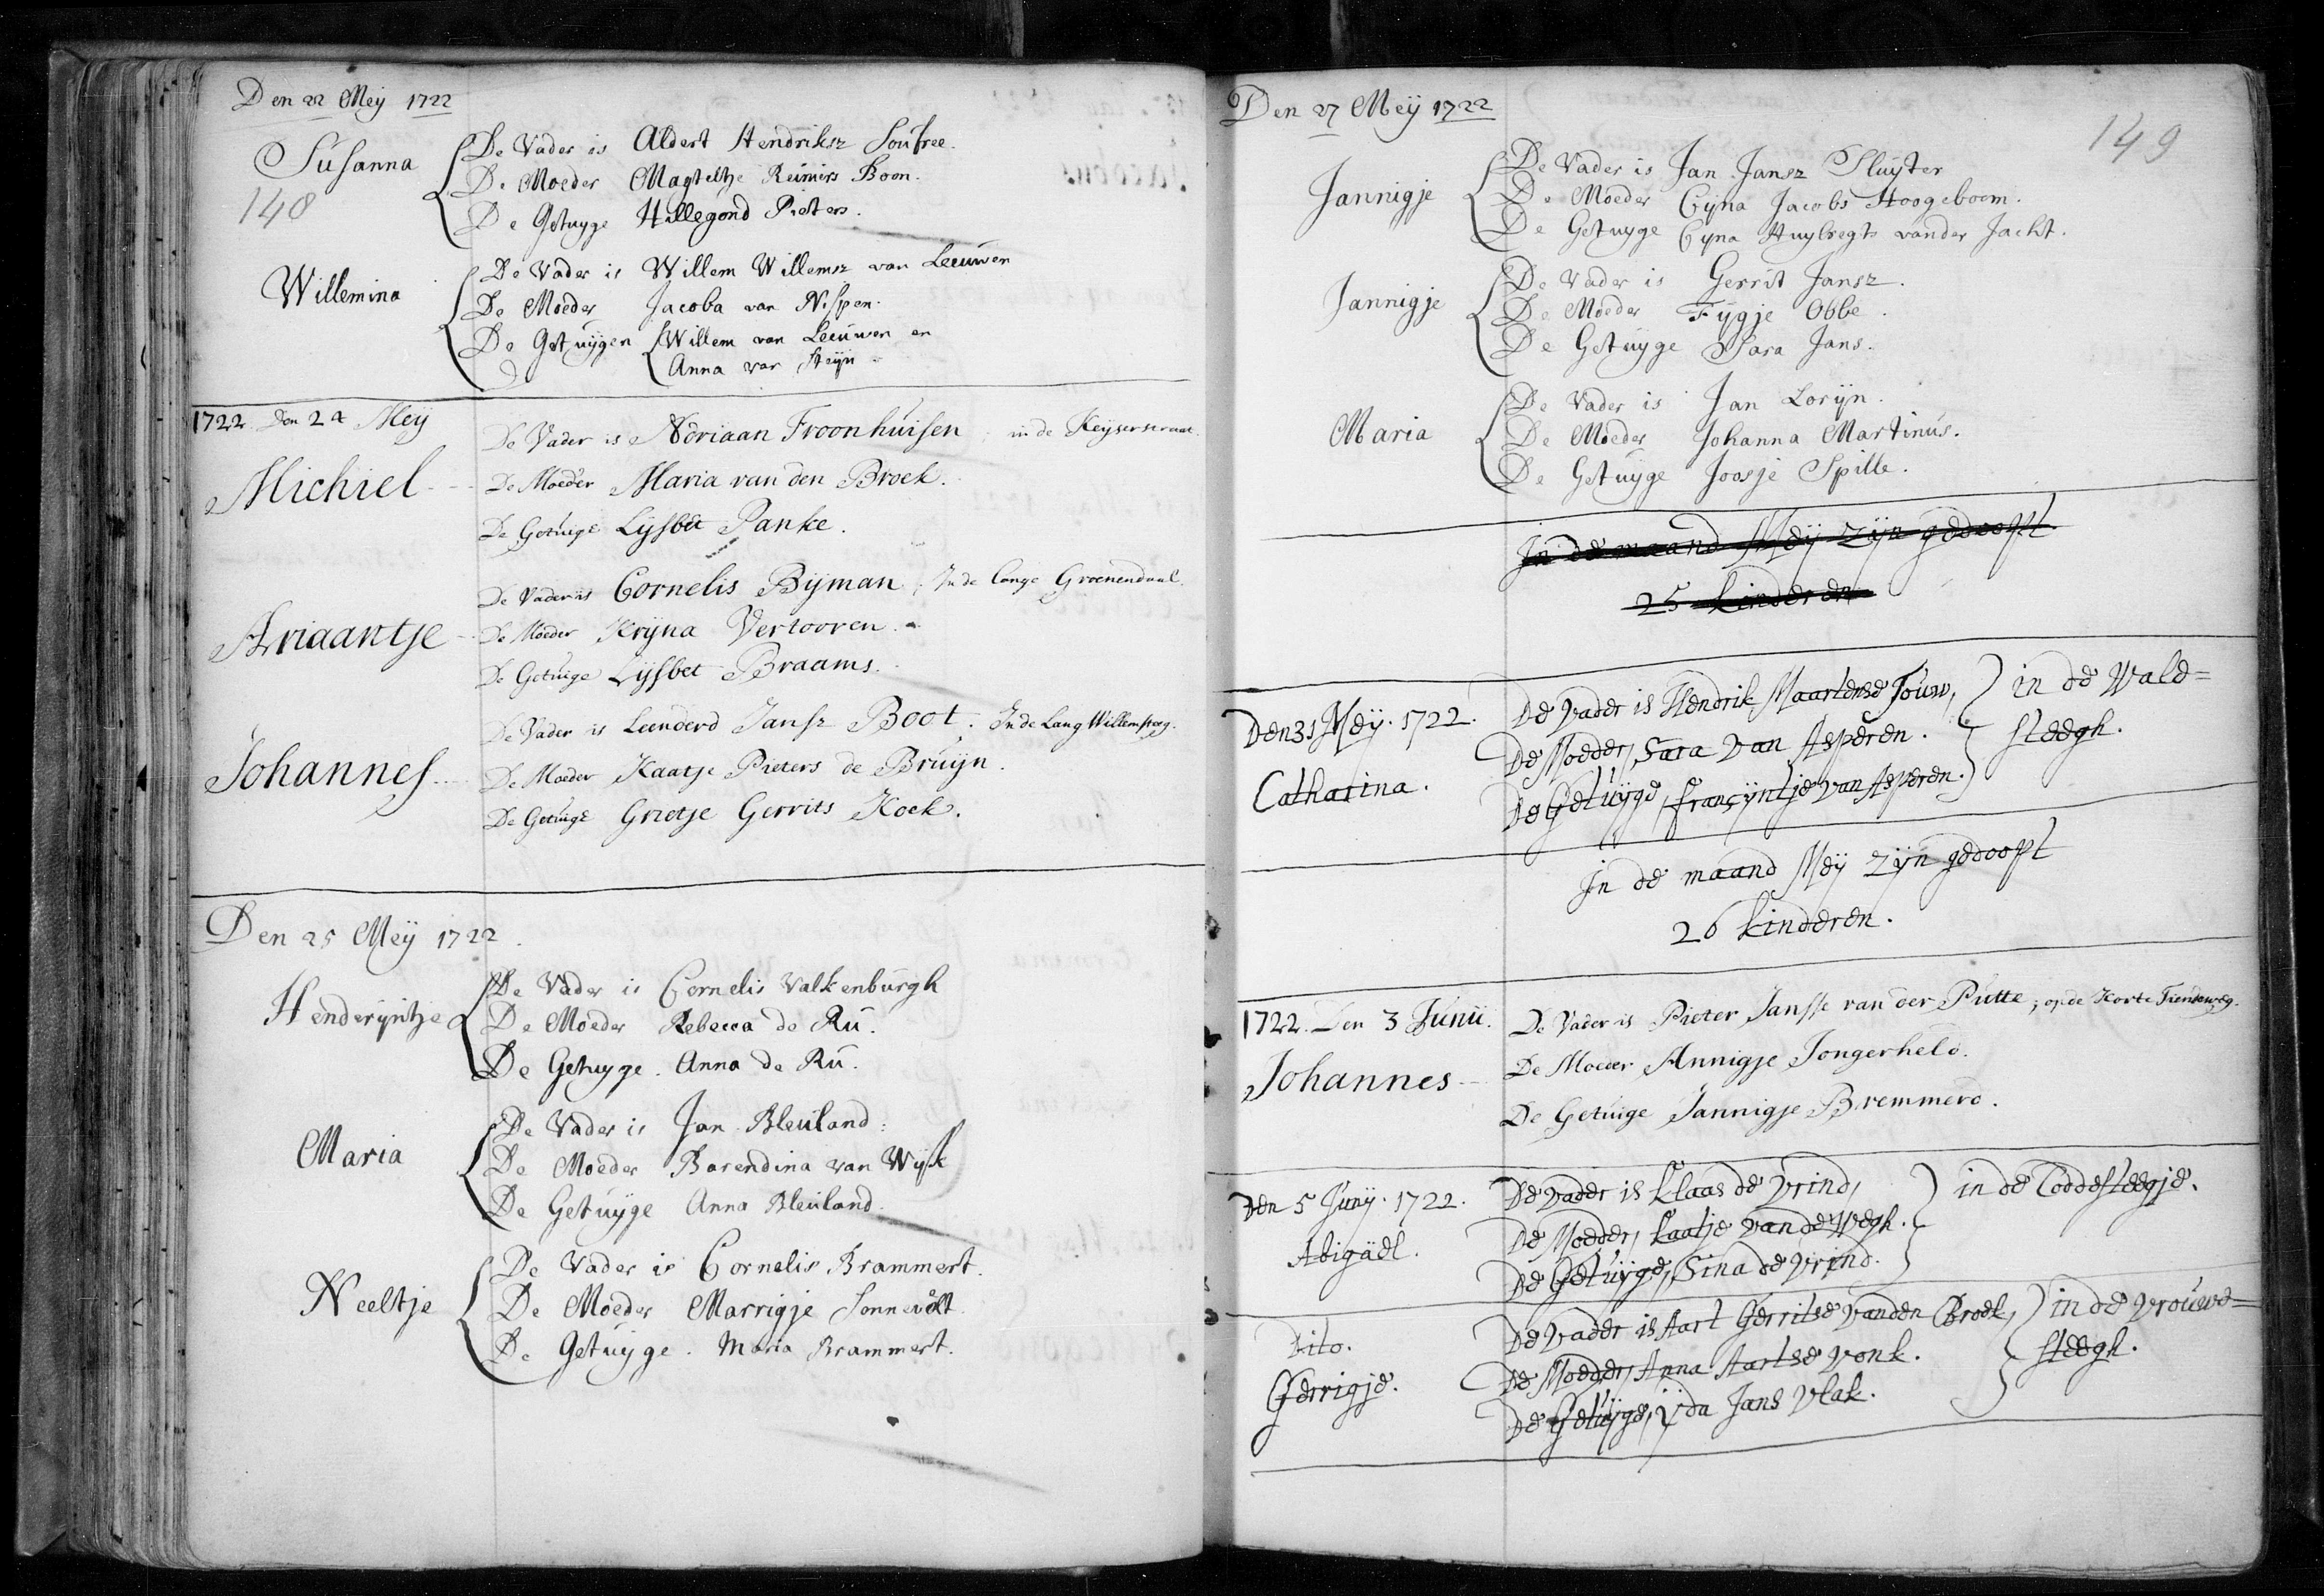 Den 22 Meij 1722
Susanna
148
De Vader is Aldert Hendriksz Soufree.
De Moeder Magteltje Reiniers Boon.
De Getuyge Hillegond Pieters.
Willemina
De Vader is Willem Willemsz van Leeuwen
De Moeder Jacoba van Nispen.
De Getuijgen Willem van Leeuwen en
Anna van Steijn
1722 Den 24 Meij
Michiel
De Vader is Adriaan Froonhuisen, in de Keijserstraat.
De Moeder Maria van den Broek.
De Getuige Lijsbet Panke.
Ariaantje
De Vader is Cornelis Bijman, In de lange Groenendaal.
De Moeder Krijna Vertooren.
De Getuige Lijsbet Braams.
Johannes
De Vader is Leenderd Jansz Boot. In de Lang Willemsteeg.
De Moeder Kaatje Pieters de Bruijn.
De Getuige Grietje Gerrits Kock.
Den 25 Meij 1722.
Henderijntje
De Vader is Cornelis Valkenburgh
De Moeder Rebecca de Rú.
De Getuyge. Anna de Rú.
Maria
De Vader is Jan Bleuland.
De Moeder Barendina van Wijk
De Getuijge Anna Bleuland.
Neeltje
De Vader is Cornelis Brammert.
De Moeder Marrigje Sonnevelt.
De Getuijge. Maria Brammert.
Den 27 Meij 1722
149
Jannigje
De Vader is Jan Jansz Sluijter
De Moeder Cyna Jacobs Hoogeboom.
De Getuyge Cyna Huybregts vander Jacht.
Jannigje
De Vader is Gerrit Jansz.
De Moeder Fijgje Obbe.
De Getuijge Sara Jans.
Maria
De Vader is Jan Lorijn.
De Moeder Johanna Martinus.
De Getuijge Joosje Spille.
In de maand Meij zijn gedoopt
25 kinderen
Den 31 Meij. 1722.
Catharina.
De Vader is Hendrik Maartense Touw, in de Wald=
De Moeder, Sara van Asperen. steegh.
De Getuijge, Françijntje van Asperen.
In de maand Meij zijn gedoopt
26 kinderen.
1722. Den 3 Junii.
Johannes
De Vader is Pieter Jansse van der Putte, op de Korte Tiendeweg.
De Moeder Annigje Jongerheld.
De Getuige Jannigje Bremmerd.
Den 5 Junij. 1722.
Abigäel.
De Vader is Klaas de Vrind, in de Coddesteegje.
De Moeder, Kaatje van de Wegh.
De Getuijge, Sina de Vrind.
Dito.
Gerrigje.
De Vader is Aart Gerritse van den Broek, in de Vrouwe=
De Moeder, Anna Aartse Vonk. steegh.
De Getuijge, Ijda Jans Vlak.